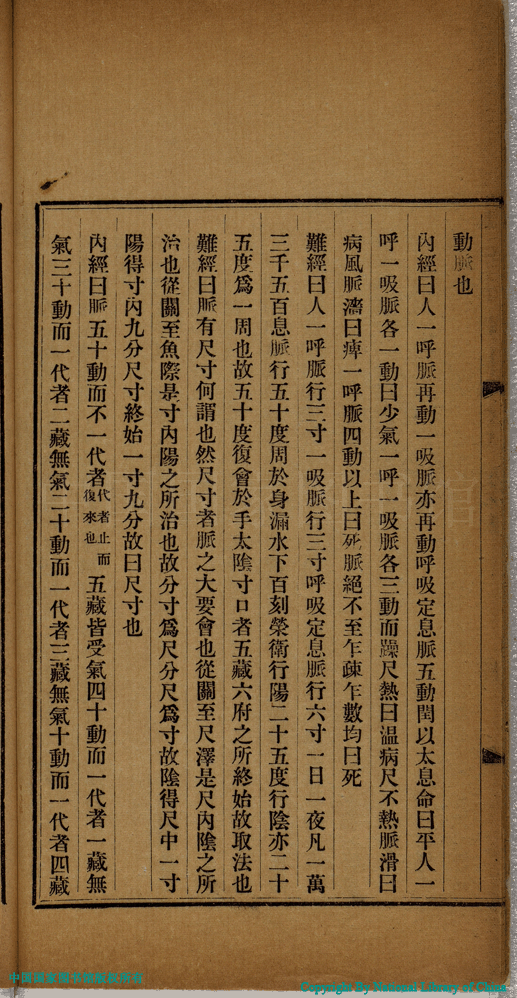 動脈也
內經曰人一呼脈再動一吸脈亦再動呼吸定息脈五動閏以太息命曰平人一
呼一吸脈各一動曰少氣一呼一吸脈各三動而躁尺熱曰温病尺不熱脈滑曰
病風脈濇曰痺一呼脈四動以上曰死脈絕不至乍疎乍數均曰死
難經曰人一呼脈行三寸一吸脈行三寸呼吸定息脈行六寸一日一夜凡一萬
三千五百息脈行五十度周於身漏水下百刻榮衛行陽二十五度行陰亦二十
五度爲一周也故五十度復會於手太陰寸口者五藏六府之所終始故取法也
難經曰脈有尺寸何謂也然尺寸者脈之大要會也從關至尺澤是尺內陰之所
治也從關至魚際是寸內陽之所治也故分寸爲尺分尺爲寸故陰得尺中一寸
陽得寸內九分尺寸終始一寸九分故曰尺寸也
內經曰脈五十動而不一代者代者止而復來也五藏皆受氣四十動而一代者一藏無
氣三十動而一代者二藏無氣二十動而一代者三藏無氣十動而一代者四藏
中国国家图书馆版权所有
Copyright By National Library of China